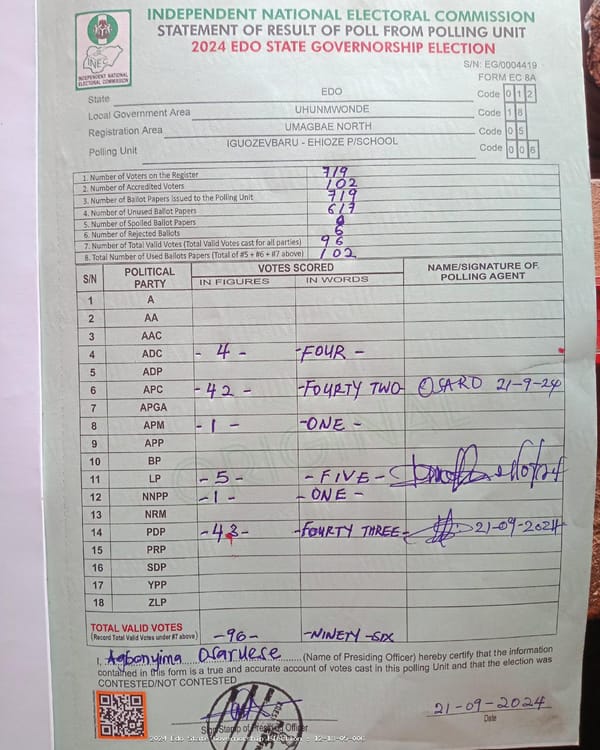 INDEPENDENT NATIONAL ELECTORAL COMMISSION
STATEMENT OF RESULT OF POLL FROM POLLING UNIT
2024 EDO STATE GOVERNORSHIP ELECTION
INEC
INDEPENDENT NATIONAL ELECTORAL COMMISSION
S/N: EG/0004419
FORM EC 8A
State EDO Code 0 1 2
Local Government Area UHUNMWONDE Code 1 8
Registration Area UMAGBAE NORTH Code 0 5
Polling Unit IGUOZEVBARU - EHIOZE P/SCHOOL Code 0 0 6
1. Number of Voters on the Register 719
2. Number of Accredited Voters 102
3. Number of Ballot Papers issued to the Polling Unit 719
4. Number of Unused Ballot Papers 617
5. Number of Spoiled Ballot Papers
6. Number of Rejected Ballots 6
7. Number of Total Valid Votes (Total Valid Votes cast for all parties) 96
8. Total Number of Used Ballots Papers (Total of #5 + #6 + #7 above) 102
S/N POLITICAL PARTY VOTES SCORED NAME/SIGNATURE OF POLLING AGENT
IN FIGURES IN WORDS
1 A
2 AA
3 AAC
4 ADC - 4 - - FOUR -
5 ADP
6 APC - 42 - - FOURTY TWO - OSARO 21-9-24
7 APGA
8 APM - 1 - - ONE -
9 APP
10 BP
11 LP - 5 - - FIVE -
12 NNPP - 1 - - ONE -
13 NRM
14 PDP - 43 - - FOURTY THREE - 21-09-2024
15 PRP
16 SDP
17 YPP
18 ZLP
ORIGINAL
TOTAL VALID VOTES
(Record Total Valid Votes under #7 above) - 96 - - NINETY - SIX
I, Agbonyima Osaruese (Name of Presiding Officer) hereby certify that the information
contained in this form is a true and accurate account of votes cast in this polling Unit and that the election was
CONTESTED/NOT CONTESTED
Sign/Stamp of Presiding Officer
21-09-2024
Date
2024 Edo State Governorship Election - 12-18-05-006